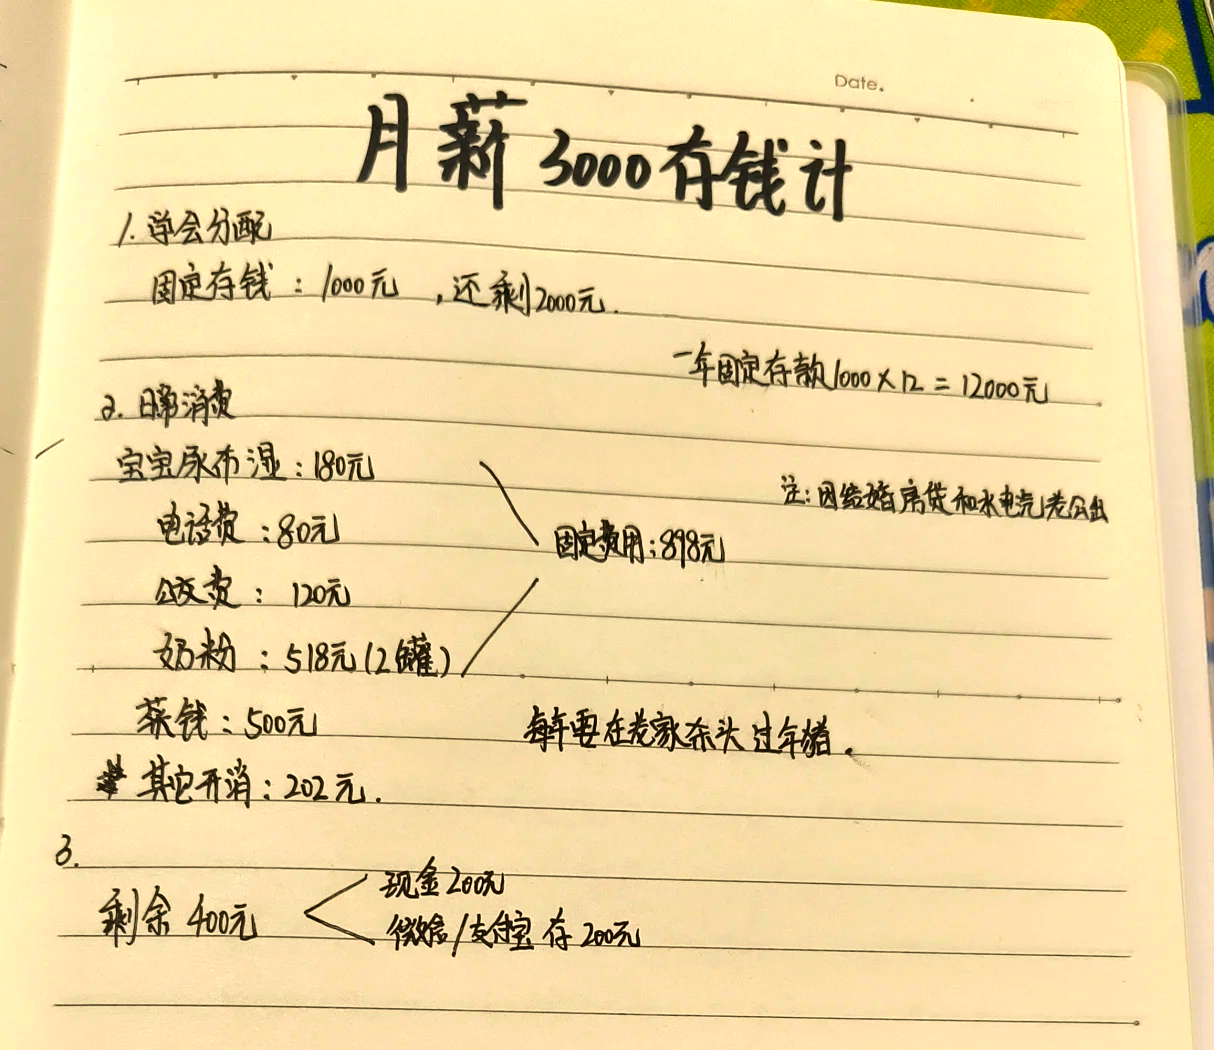 Date.
月薪3000存钱计
1.学会分配
固定存钱:1000元,还剩2000元.
一年固定存款1000×12=12000元
2.日常消费
宝宝尿布湿:180元
注:因结婚房贷和水电气老公出
电话费:80元
固定费用:898元
公交费:120元
奶粉:518元(2罐)
菜钱:500元
每年要在老家杀头过年猪.
其它开消:202元.
3.
剩余400元
现金200元
微信/支付宝存200元